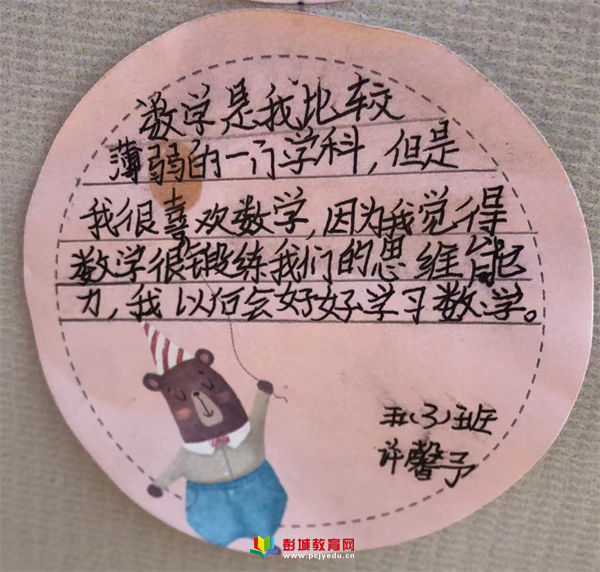 数学是我比较
薄弱的一门学科,但是
我很喜欢数学,因为我觉得
数学很锻练我们的思维能
力,我以后会好好学习数学。
五(3)班
许馨予
彭城教育网
www.pcjyedu.cn